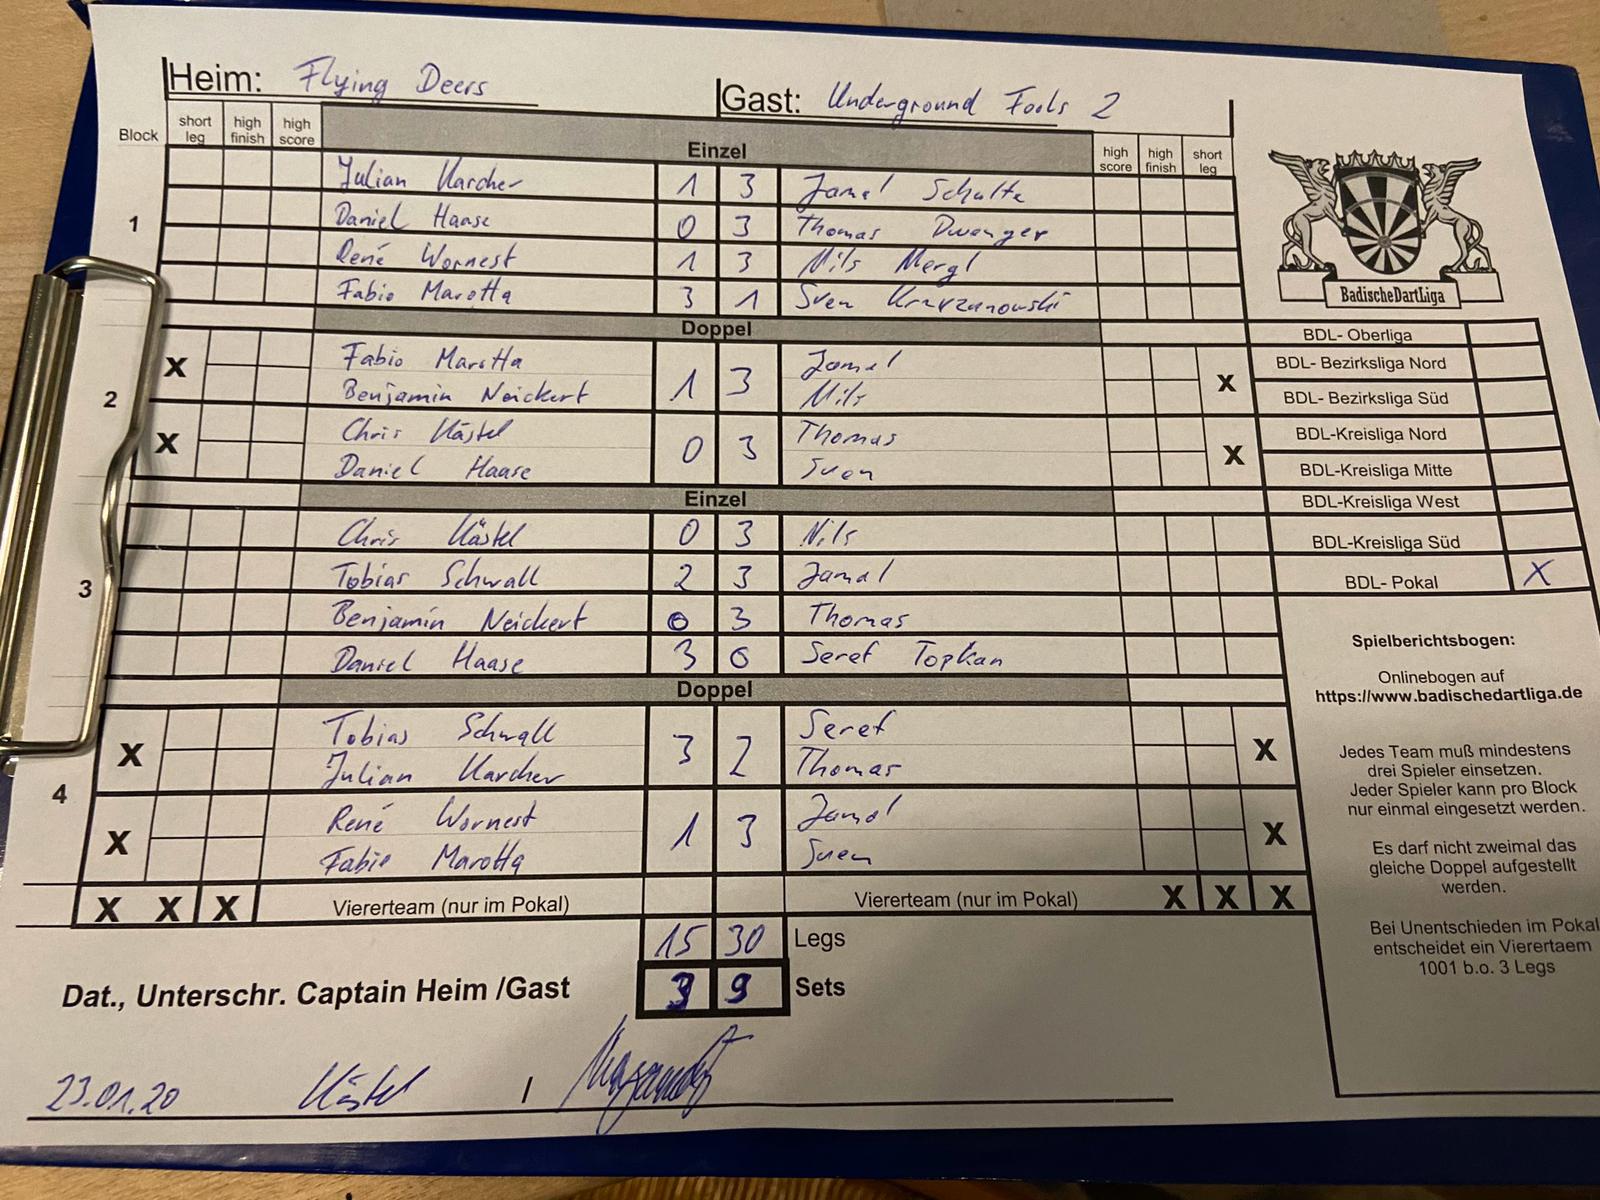 Heim: Flying Deers Gast: Underground Fools 2
Block short leg high finish high score Einzel high score high finish short leg
1
Julian Karcher 1 3 Jamal Schulte
Daniel Haase 0 3 Thomas Dwenger
René Wornest 1 3 Nils Mergl
Fabio Marotta 3 1 Sven
Doppel
2
X Fabio Marotta 1 3 Jamal X
Benjamin Neickert Nils
X Chris Kästel 0 3 Thomas X
Daniel Haase Sven
Einzel
3
Chris Kästel 0 3 Nils
Tobias Schwall 2 3 Jamal
Benjamin Neickert 0 3 Thomas
Daniel Haase 3 0 Seref Topkan
Doppel
4
X Tobias Schwall 3 2 Seref X
Julian Karcher Thomas
X René Wornest 1 3 Jamal X
Fabio Marotta Sven
X X X Vierteam (nur im Pokal) Vierteam (nur im Pokal) X X X
15 30 Legs
Dat., Unterschr. Captain Heim /Gast 3 9 Sets
23.01.20 Kästel /
BadischeDartLiga
BDL- Oberliga
BDL- Bezirksliga Nord
BDL- Bezirksliga Süd
BDL-Kreisliga Nord
BDL-Kreisliga Mitte
BDL-Kreisliga West
BDL-Kreisliga Süd
BDL- Pokal X
Spielberichtsbogen:
Onlinebogen auf
https://www.badischedartliga.de
Jedes Team muß mindestens
drei Spieler einsetzen.
Jeder Spieler kann pro Block
nur einmal eingesetzt werden.
Es darf nicht zweimal das
gleiche Doppel aufgestellt
werden.
Bei Unentschieden im Pokal
entscheidet ein Vierertaem
1001 b.o. 3 Legs